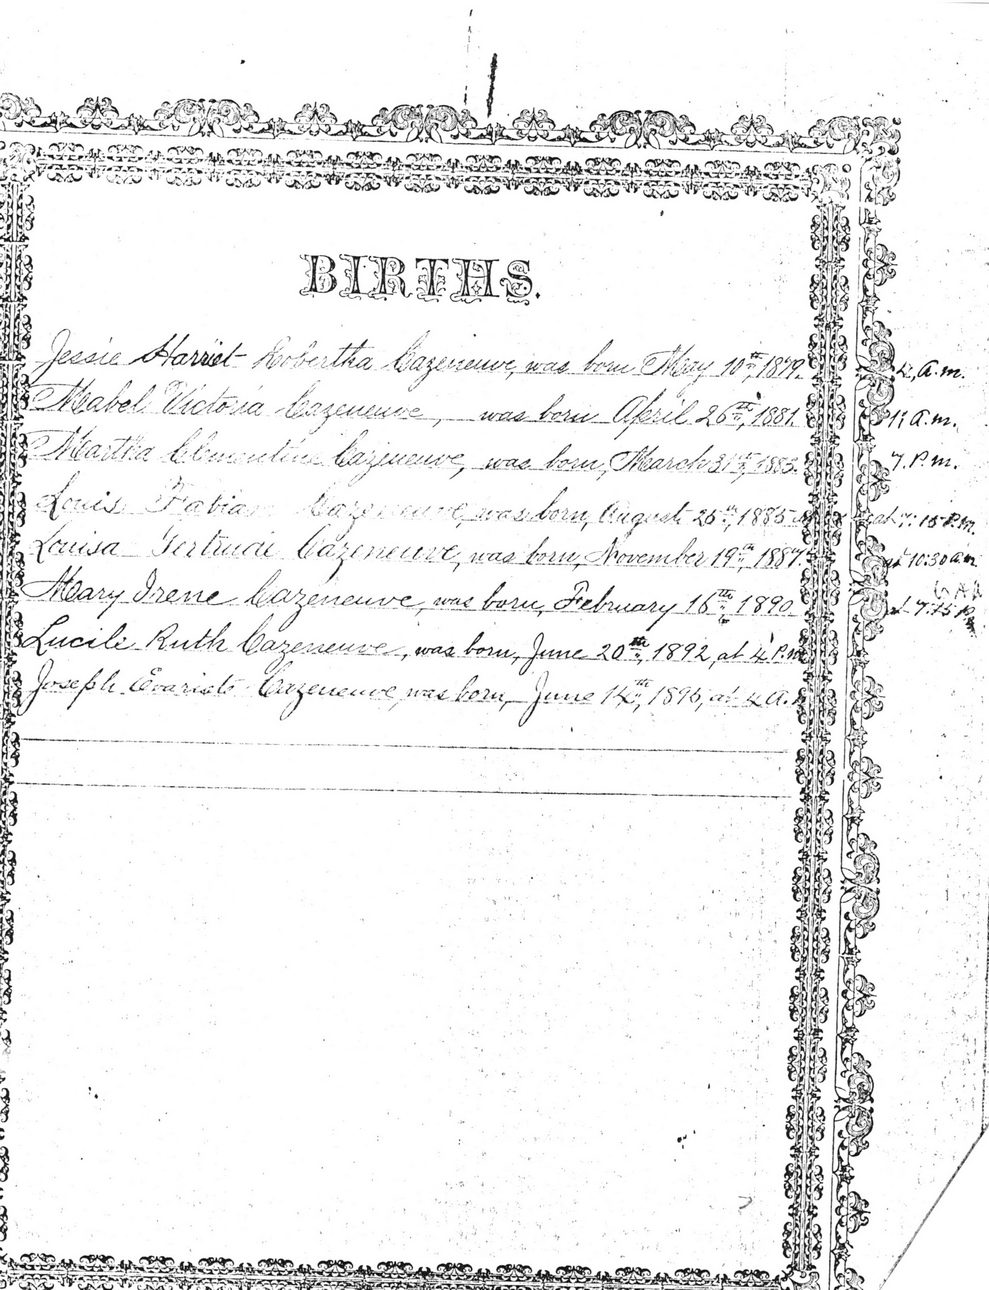 BIRTHS.
Jessie Harriet Robertha Cazeneuve, was born May 10th, 1879. 4, A.m.
Mabel Victoria Cazeneuve, was born April 26th, 1881. 11 A.m.
Martha Clementine Cazeneuve, was born, March 31st, 1883. 7. P.m.
Louis Fabian Cazeneuve, was born, August 25th, 1885 at 7.15 P.m.
Louisa Gertrude Cazeneuve, was born, November 19th, 1887. at 10:30 a.m.
Mary Irene Cazeneuve, was born, February 16th, 1890. at 7.15 P.
Lucile Ruth Cazeneuve, was born, June 20th, 1892, at 4 P.m
Joseph Evariste Cazeneuve, was born, June 14th, at 4 A.